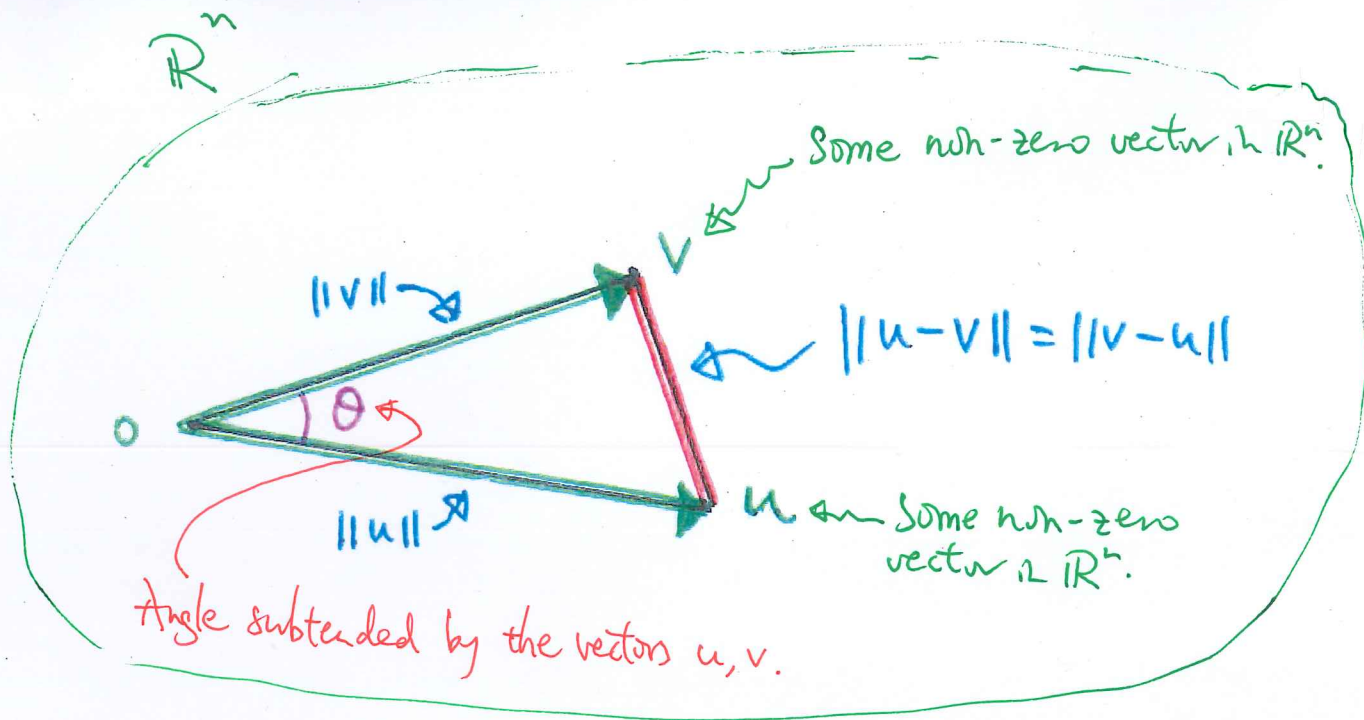 ℝⁿ
Some non-zero vector in ℝⁿ.
v
||v||
||u-v|| = ||v-u||
θ
0
u
Some non-zero
vector in ℝⁿ.
||u||
Angle subtended by the vectors u, v.